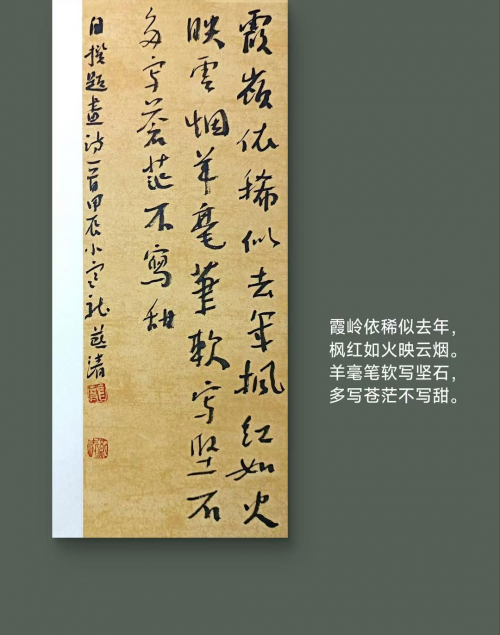 霞嶺依稀似去年枫红如火
映雲烟羊毫筆軟写坚石
多写蒼茫不寫甜
自撰题画诗一首甲辰小寒龙
霞岭依稀似去年，
枫红如火映云烟。
羊毫笔软写坚石，
多写苍茫不写甜。